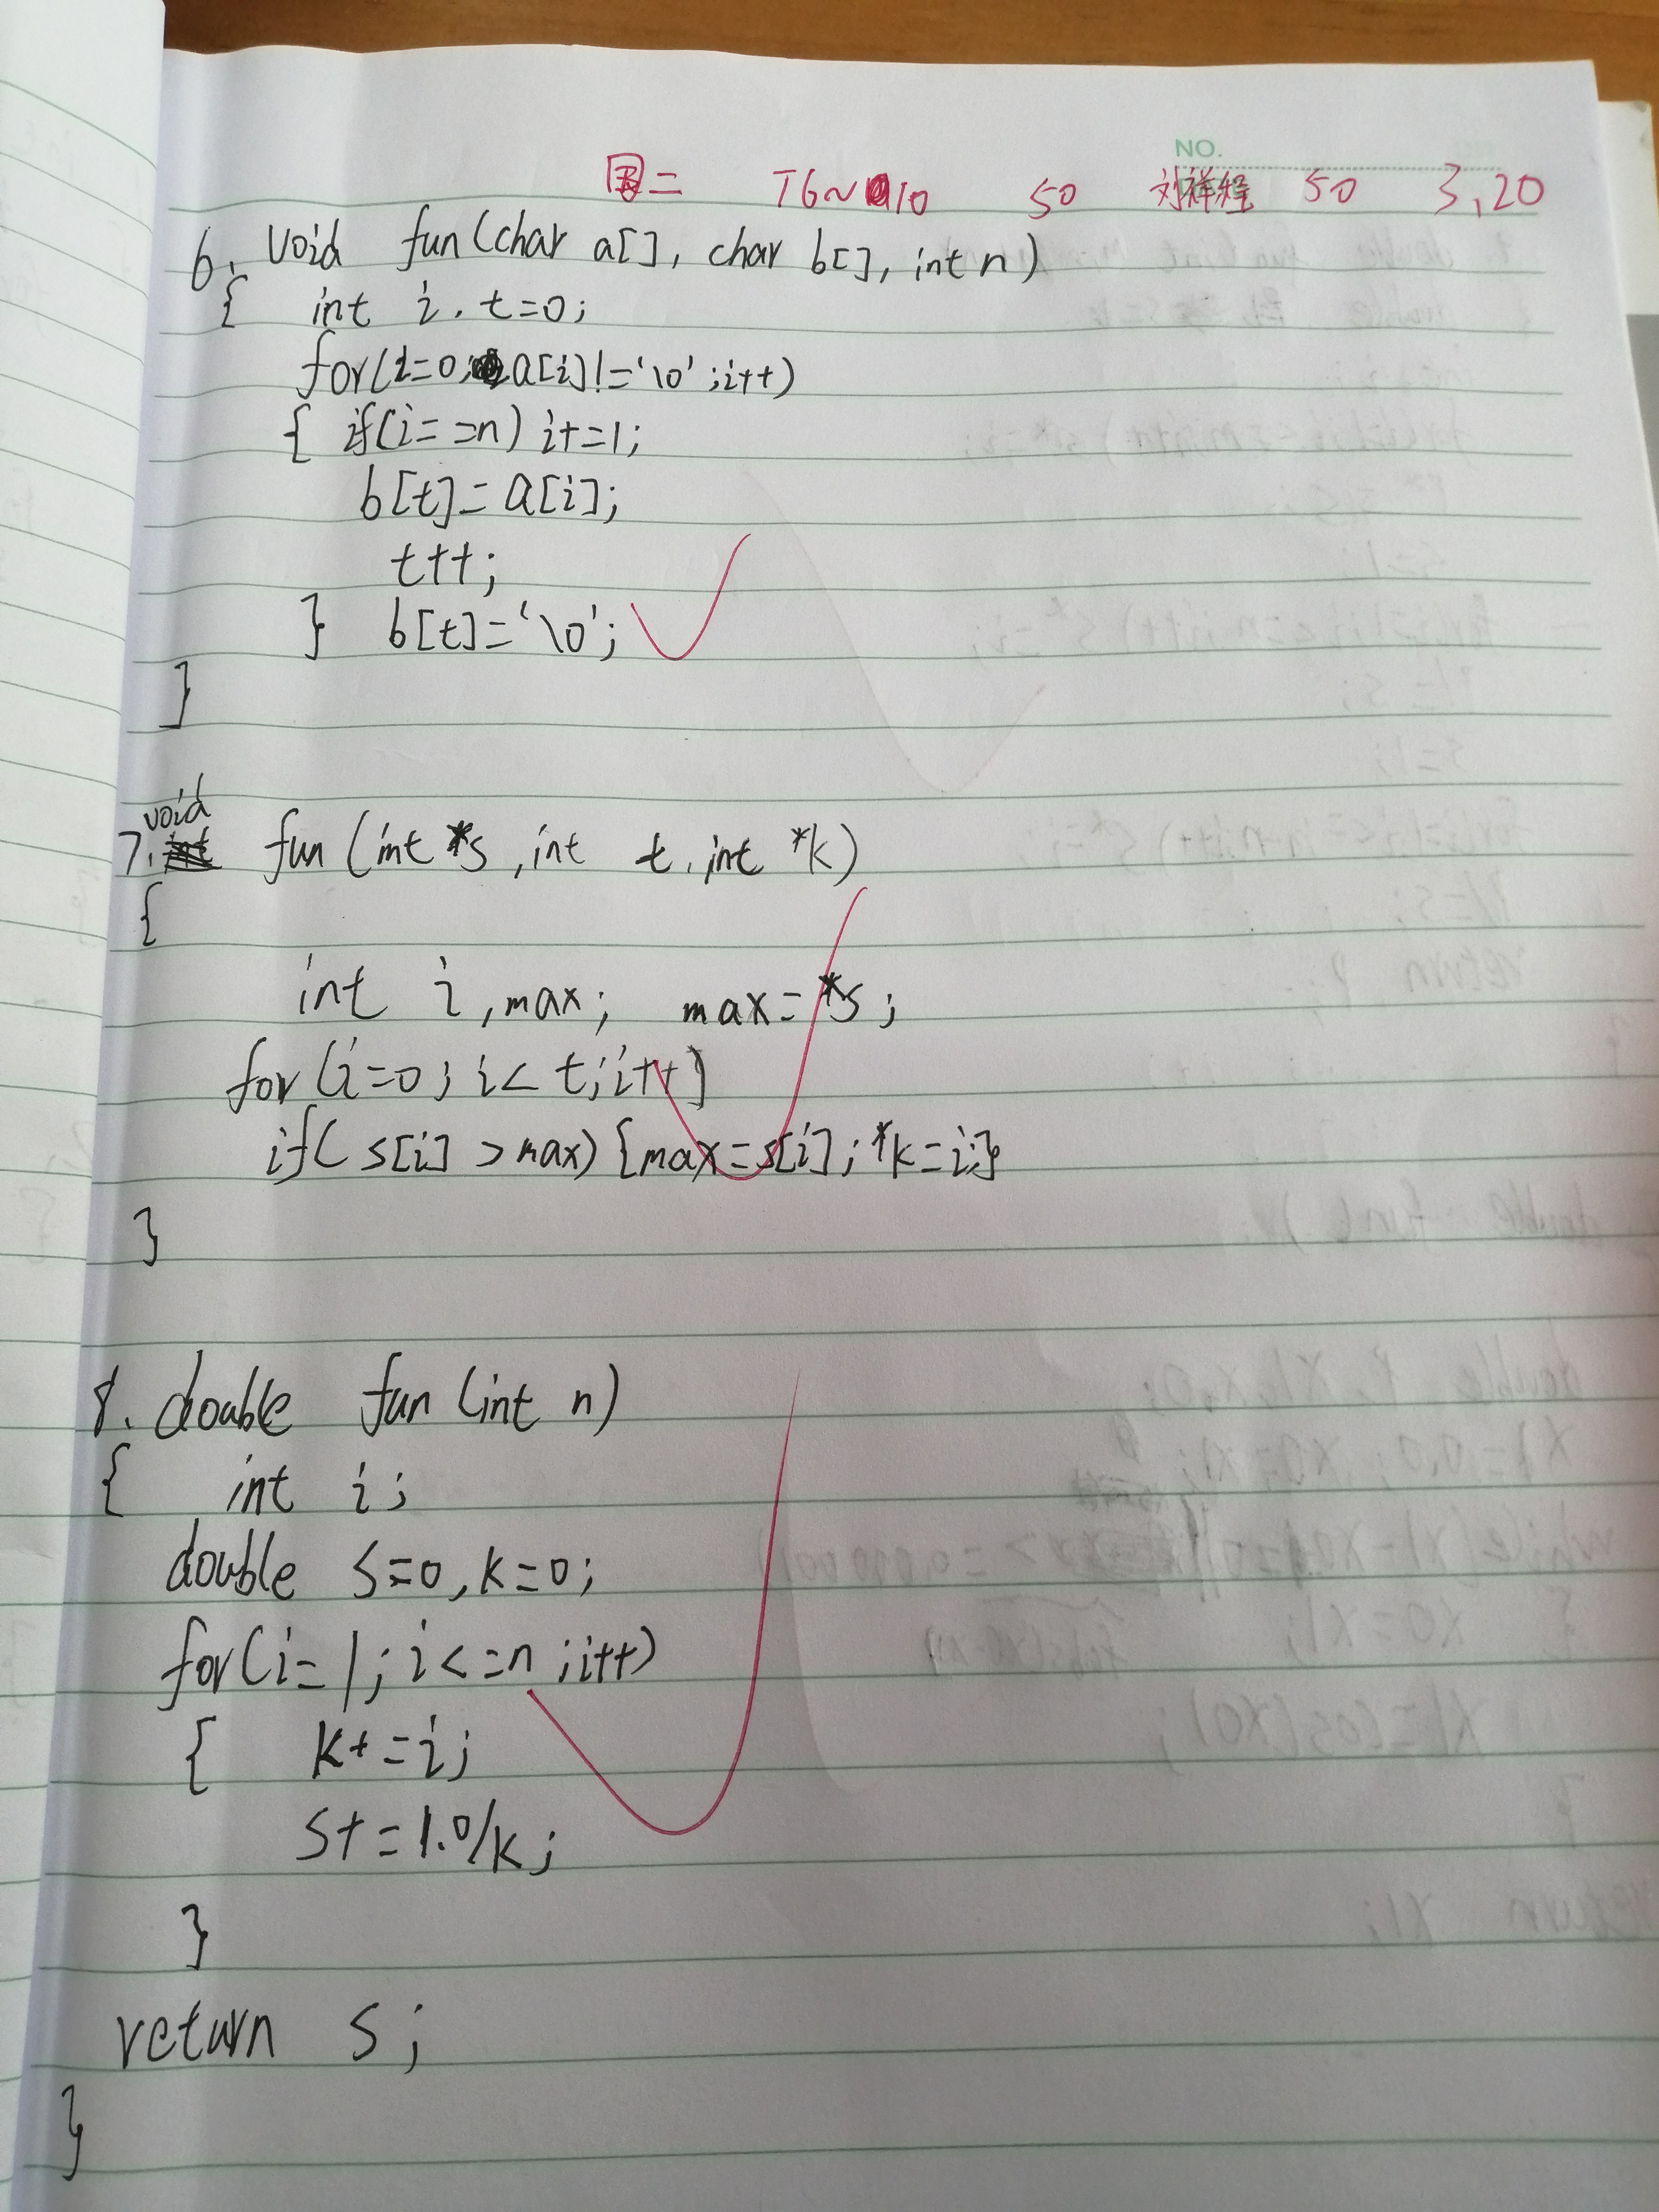 NO.
二 T6~10 50 刘祥程 50 3,20
6. void fun(char a[], char b[], int n)
{ int i, t=0;
for(i=0; a[i]!='\0';i++)
{ if(i==n) i+=1;
b[t]=a[i];
t++;
} b[t]='\0';
}
void
7. fun (int *s, int t, int *k)
{
int i, max; max=*s;
for(i=0; i<t; i++)
if(s[i]>max){max=s[i];*k=i;}
}
8. double fun (int n)
{ int i;
double s=0,k=0;
for(i=1;i<=n;i++)
{ k+=i;
s+=1.0/k;
}
return s;
}